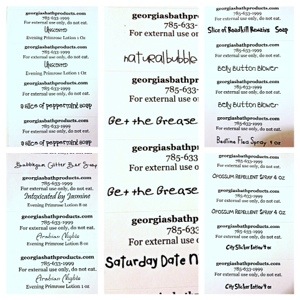 georgiasbathproducts.com
785-633-1999
For external use only, do not eat.
Unscented
Evening Primrose Lotion 1 Oz
georgiasbathproducts.com
785-633-1999
For external use only, do not eat.
Unscented
Evening Primrose Lotion 1 oz
georgiasbathproducts.com
785-633-1999
For external use only, do not eat.
a slice of peppermint soap
georgiasbathproducts.com
785-633-1999
For external use only, do not eat.
a slice of peppermint soap
georgiasbathp
785-633-
For external use o
natural bubble
georgiasbathp
785-633-
For external use o
Get the Grease
georgiasbathproducts.com
785-633-1999
For external use only, do not eat.
Slice of Roadkill Remains Soap
georgiasbathproducts.com
785-633-1999
For external use only, do not eat.
Belly Button Blower
georgiasbathproducts.com
785-633-1999
For external use only, do not eat.
Belly Button Blower
georgiasbathproducts.com
785-633-1999
For external use only, do not eat.
Bedtime Flea Spray 4 oz
Bar Soap
georgiasbathproducts.com
785-633-1999
For external use only, do not eat.
Intoxicated by Jasmine
Evening Primrose Lotion 8 oz
georgiasbathproducts.com
785-633-1999
For external use only, do not eat.
Arabian Nights
Evening Primrose Lotion 8 oz
georgiasbathproducts.com
785-633-1999
For external use only, do not eat.
Arabian Nights
Evening Primrose Lotion 1 oz
georgiasbathp
785-633-
For external use o
Get the Grease
georgiasbathp
785-633
For external use o
Saturday Date N
georgiasbathproducts.com
785-633-1999
For external use only, do not eat.
Opossum Repellent Spray 4 oz
georgiasbathproducts.com
785-633-1999
For external use only, do not eat.
Opossum Repellent Spray 4 oz
georgiasbathproducts.com
785-633-1999
For external use only, do not eat.
City Slicker Lotion 9 oz
georgiasbathproducts.com
785-633-1999
For external use only, do not eat.
City Slicker Lotion 9 oz